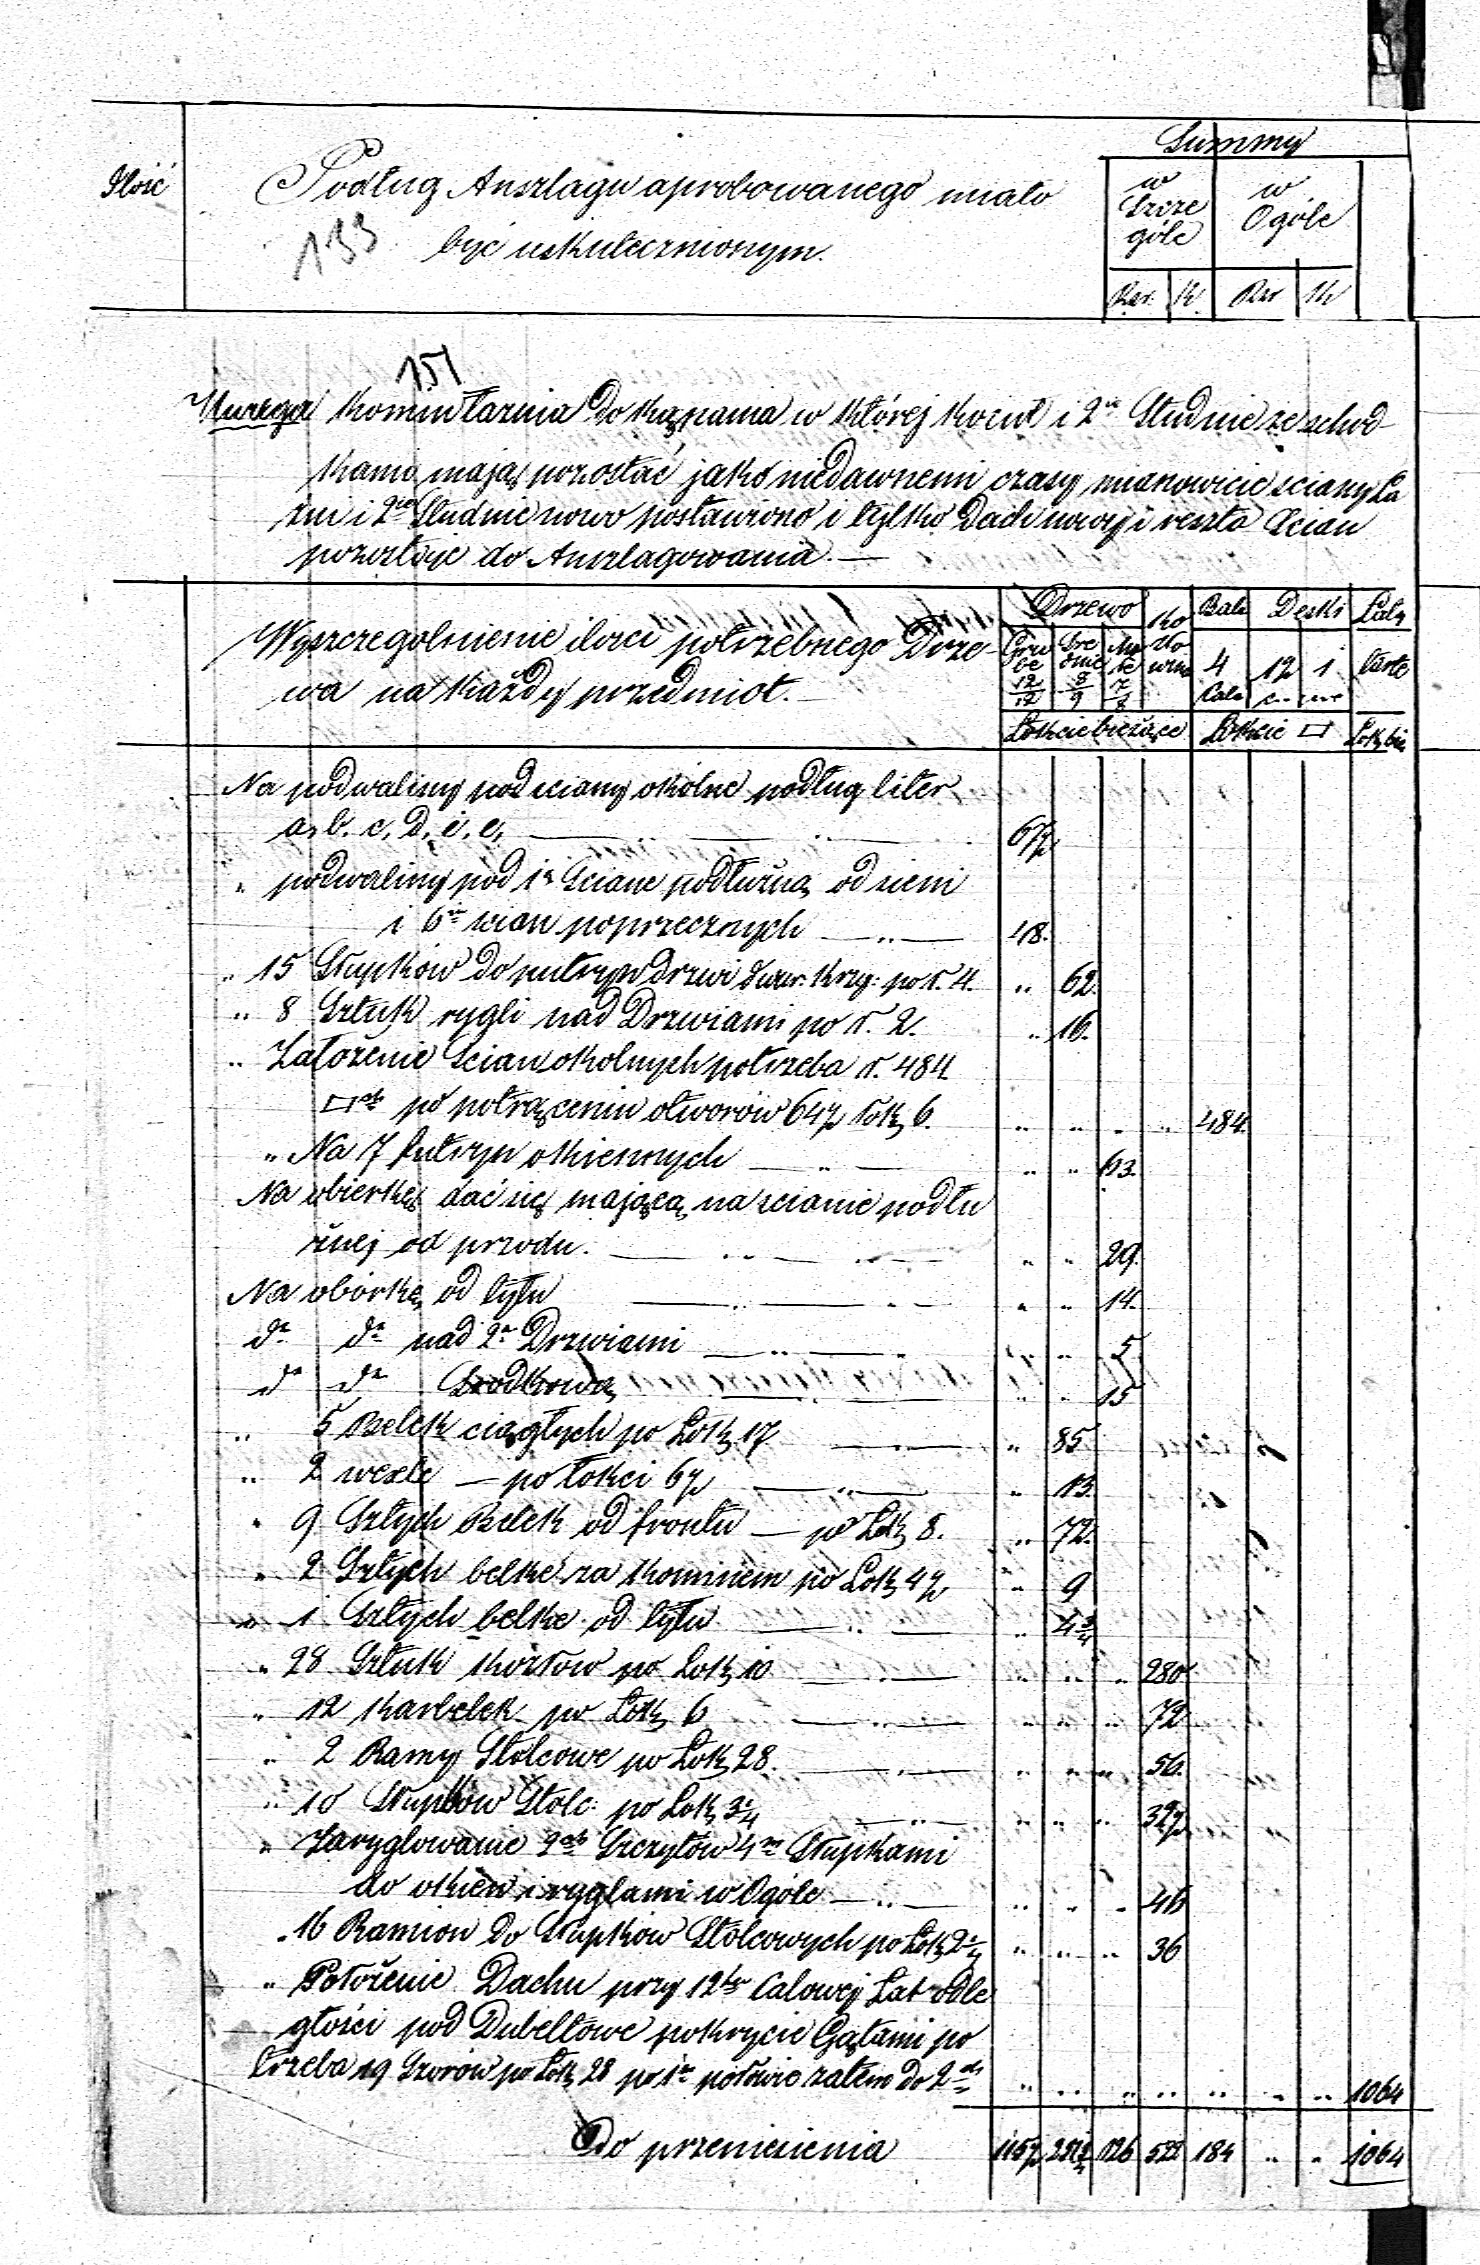 Summy
Ilość
Podług Anszlagu aprobowanego miało
być uskutecznionym.
133
w Szczególe
w Ogóle
Rsr. K. Rsr K
151
Uwaga Komin Łaznia do kąpania w której Kocieł i 2ie Studnie ze schod
kami mają pozostać jako niedawnemi czasy mianowicie sciany Ła
zni i 2ie Studnie nowo postawiono i tylko Dach nowy i reszta Scian
pozostaje do Anszlagowania. —
Wyszczegolnienie ilosci potrzebnego Drze
wa na każdy przedmiot. —
Drzewo Bale Deski Łaty
Grube 12/12 Srednie 8/9 7/8 Kozłowina 4 Cale 1½ 1 Tarte
Łokcie bieżące Łokcie □ Łok. bie
Na podwaliny pod sciany okolne podług liter
a, b. c, d, i, e, — 67½
" podwaliny pod 1ą Scianę podłużną od sieni
i 6u scian poprzecznych — " — 48.
" 15 Słupków do futryn drzwi po ł. 4. " 62.
" 8 Sztuk rygli nad Drzwiami po ł. 2. " 16.
" Założenie Scian okolnych potrzeba ł. 484
□ch po potrąceniu otworów 64½ łok. 6. " " " " 484.
" Na 7 futryn okiennych — " — " " 63.
Na obierkę dać się mającą na scianie podłu
żnej od przodu. — " " 29.
Na obiorkę od tyłu — " " 14.
do do nad 2a Drzwiami — " " 5
do do Srodkową — " " 15
" 5 Belek ciągłych po Łok. 17 — " 85
" 2 wexle — po łokci 6½ — " 13.
" 9 Sztych Belek od frontu — po Łok. 8. " 72.
" 2 Sztych belki za kominem po Łok. 4½ " 9
" 1 Sztych belka od tyłu — " 4¾
" 28 Sztuk kozłów po Łok. 10 — " " " 280
" 12 Karbelek po Łok. 6 — " " " 72
" 2 Ramy Stolcowe po Łok. 28. — " " " 56.
" 10 Słupków Stolc. po Łok. 3¼ — " " " 32½
" Zaryglowanie 2ch Szczytów 4ma Słupkami
do okien i ryglami w Ogóle — " " " 46
" 16 Ramion do Słupków Stolcowych po Łok. 2¼ " " " 36
" Położenie Dachu przy 12to Calowej Łat odle
głości pod Dubeltowe pokrycie Gątami po
trzeba 19 Szorów po Łok. 28 po 1ej połowie zatem do 2ch " " " " " " " 1064
Do przeniesienia 115½ 261¾ 126 522 484 " " 1064